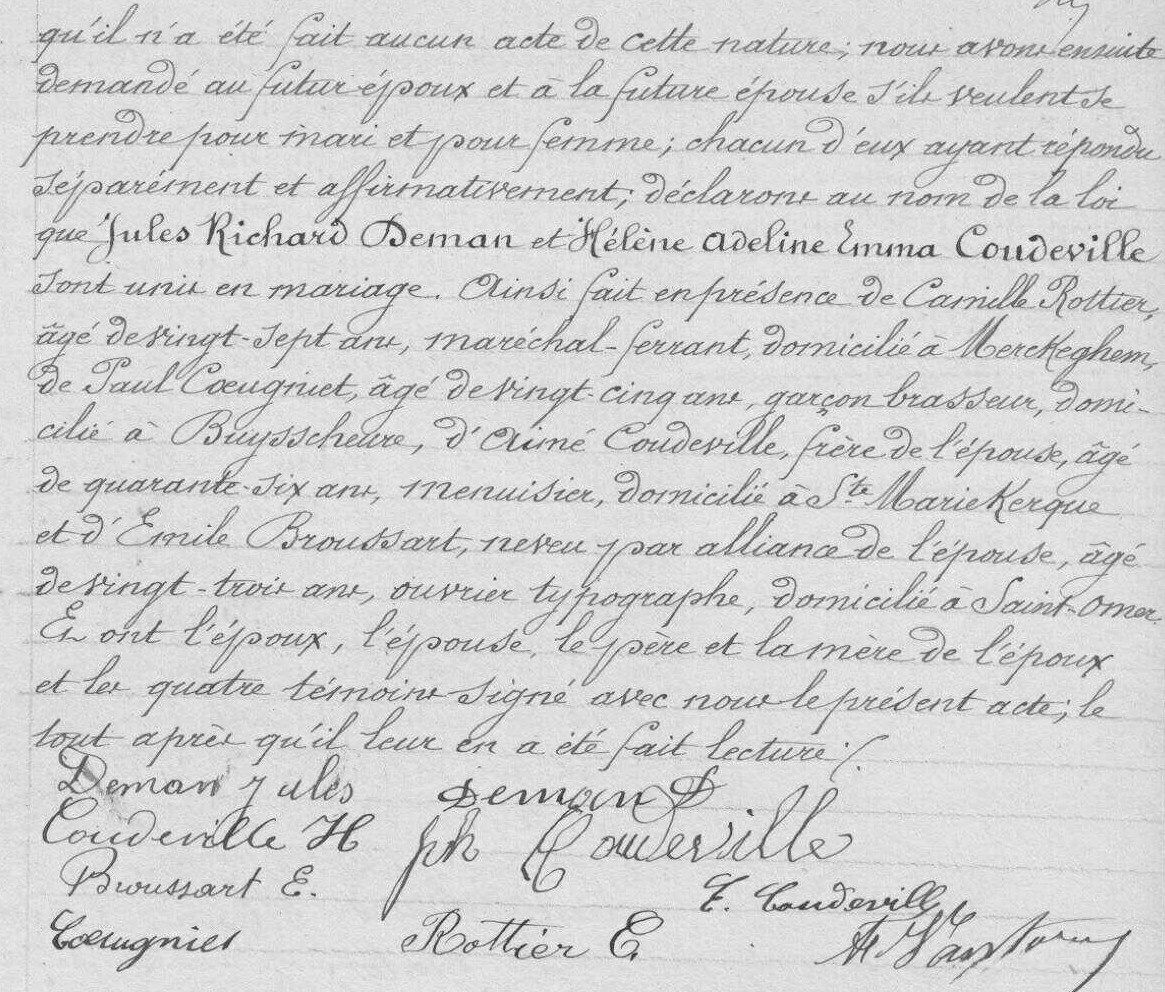 qu'il n'a été fait aucun acte de cette nature; nous avons ensuite
demandé au futur époux et à la future épouse s'ils veulent se
prendre pour mari et pour femme; chacun d'eux ayant répondu
séparément et affirmativement; déclarons au nom de la loi
que Jules Richard Deman et Hélène Adeline Emma Coudeville
sont unis en mariage. Ainsi fait en présence de Camille Rottier,
âgé de vingt-sept ans, maréchal-ferrant, domicilié à Merckeghem,
de Paul Cœugniet, âgé de vingt-cinq ans, garçon brasseur, domi-
cilié à Buysscheure, d'Aimé Coudeville, frère de l'épouse, âgé
de quarante-six ans, menuisier, domicilié à Ste Marie Kerque
et d'Emile Broussart, neveu par alliance de l'épouse, âgé
de vingt-trois ans, ouvrier typographe, domicilié à Saint-Omer.
Et ont l'époux, l'épouse, le père et la mère de l'époux
et les quatre témoins signé avec nous le présent acte; le
tout après qu'il leur en a été fait lecture ./.
Deman Jules Deman D
Coudeville H ph Coudeville
Broussart E. Coudeville
Cœugniet Rottier C